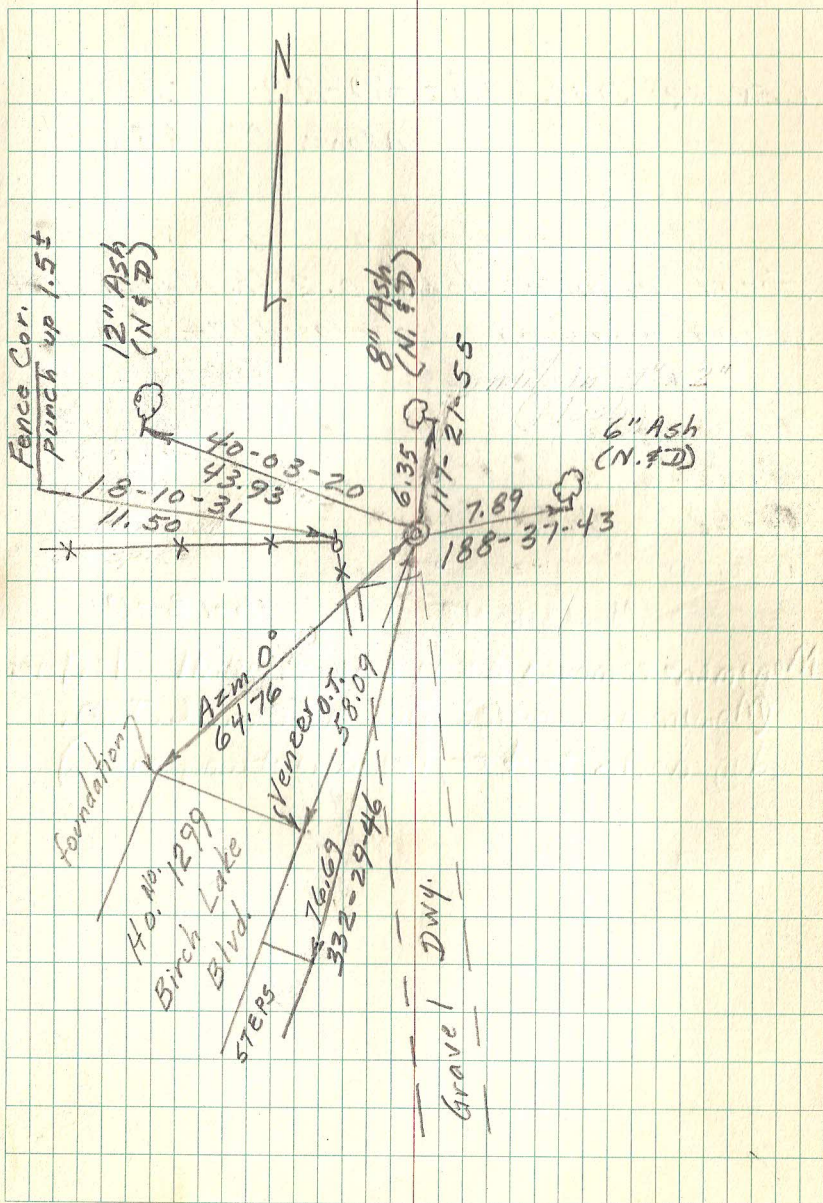 N
Fence Cor.
punch up 1.5±
12" Ash
(N & D)
8" Ash
(N. & D)
6" Ash
(N. & D)
40-03-20
43.93
18-10-31
11.50
6.35
117-21-55
7.89
188-37-43
Azm 0°
64.76
foundation
Veneer O.T.
58.09
Ho. No.
1299
Birch Lake
Blvd.
76.69
332-29-46
STEPS
Gravel Dwy.